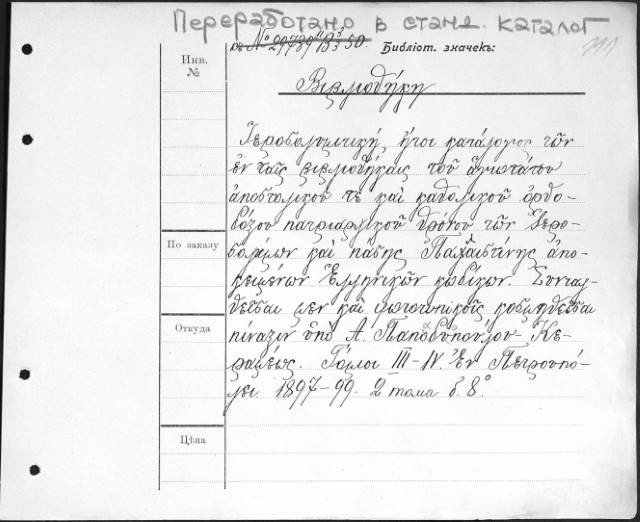 Переработано в станд. каталог
№ 29739
Библіот. значекъ:
Инв.
№
Βιβλιοθήκη
Ἱεροσολυμιτική, ἤτοι κατάλογος τῶν
ἐν ταῖς βιβλιοθήκαις τοῦ ἁγιωτάτου
ἀποστολικοῦ τε καὶ καθολικοῦ ὀρθο-
δόξου πατριαρχικοῦ θρόνου τῶν Ἱερο-
По заказу
σολύμων καὶ πάσης Παλαιστίνης ἀπο-
κειμένων Ἑλληνικῶν κωδίκων. Συνταχ-
θεῖσα μεν καὶ φωτοτυπικοῖς κοσμηθεῖσα
Откуда
πίναξιν ὑπὸ Α. Παπαδοπούλου Κε-
ραμέως. Τόμοι III-IV. Ἐν Πετρουπό-
λει 1897-99. 2 тома б. 8°
Цѣна